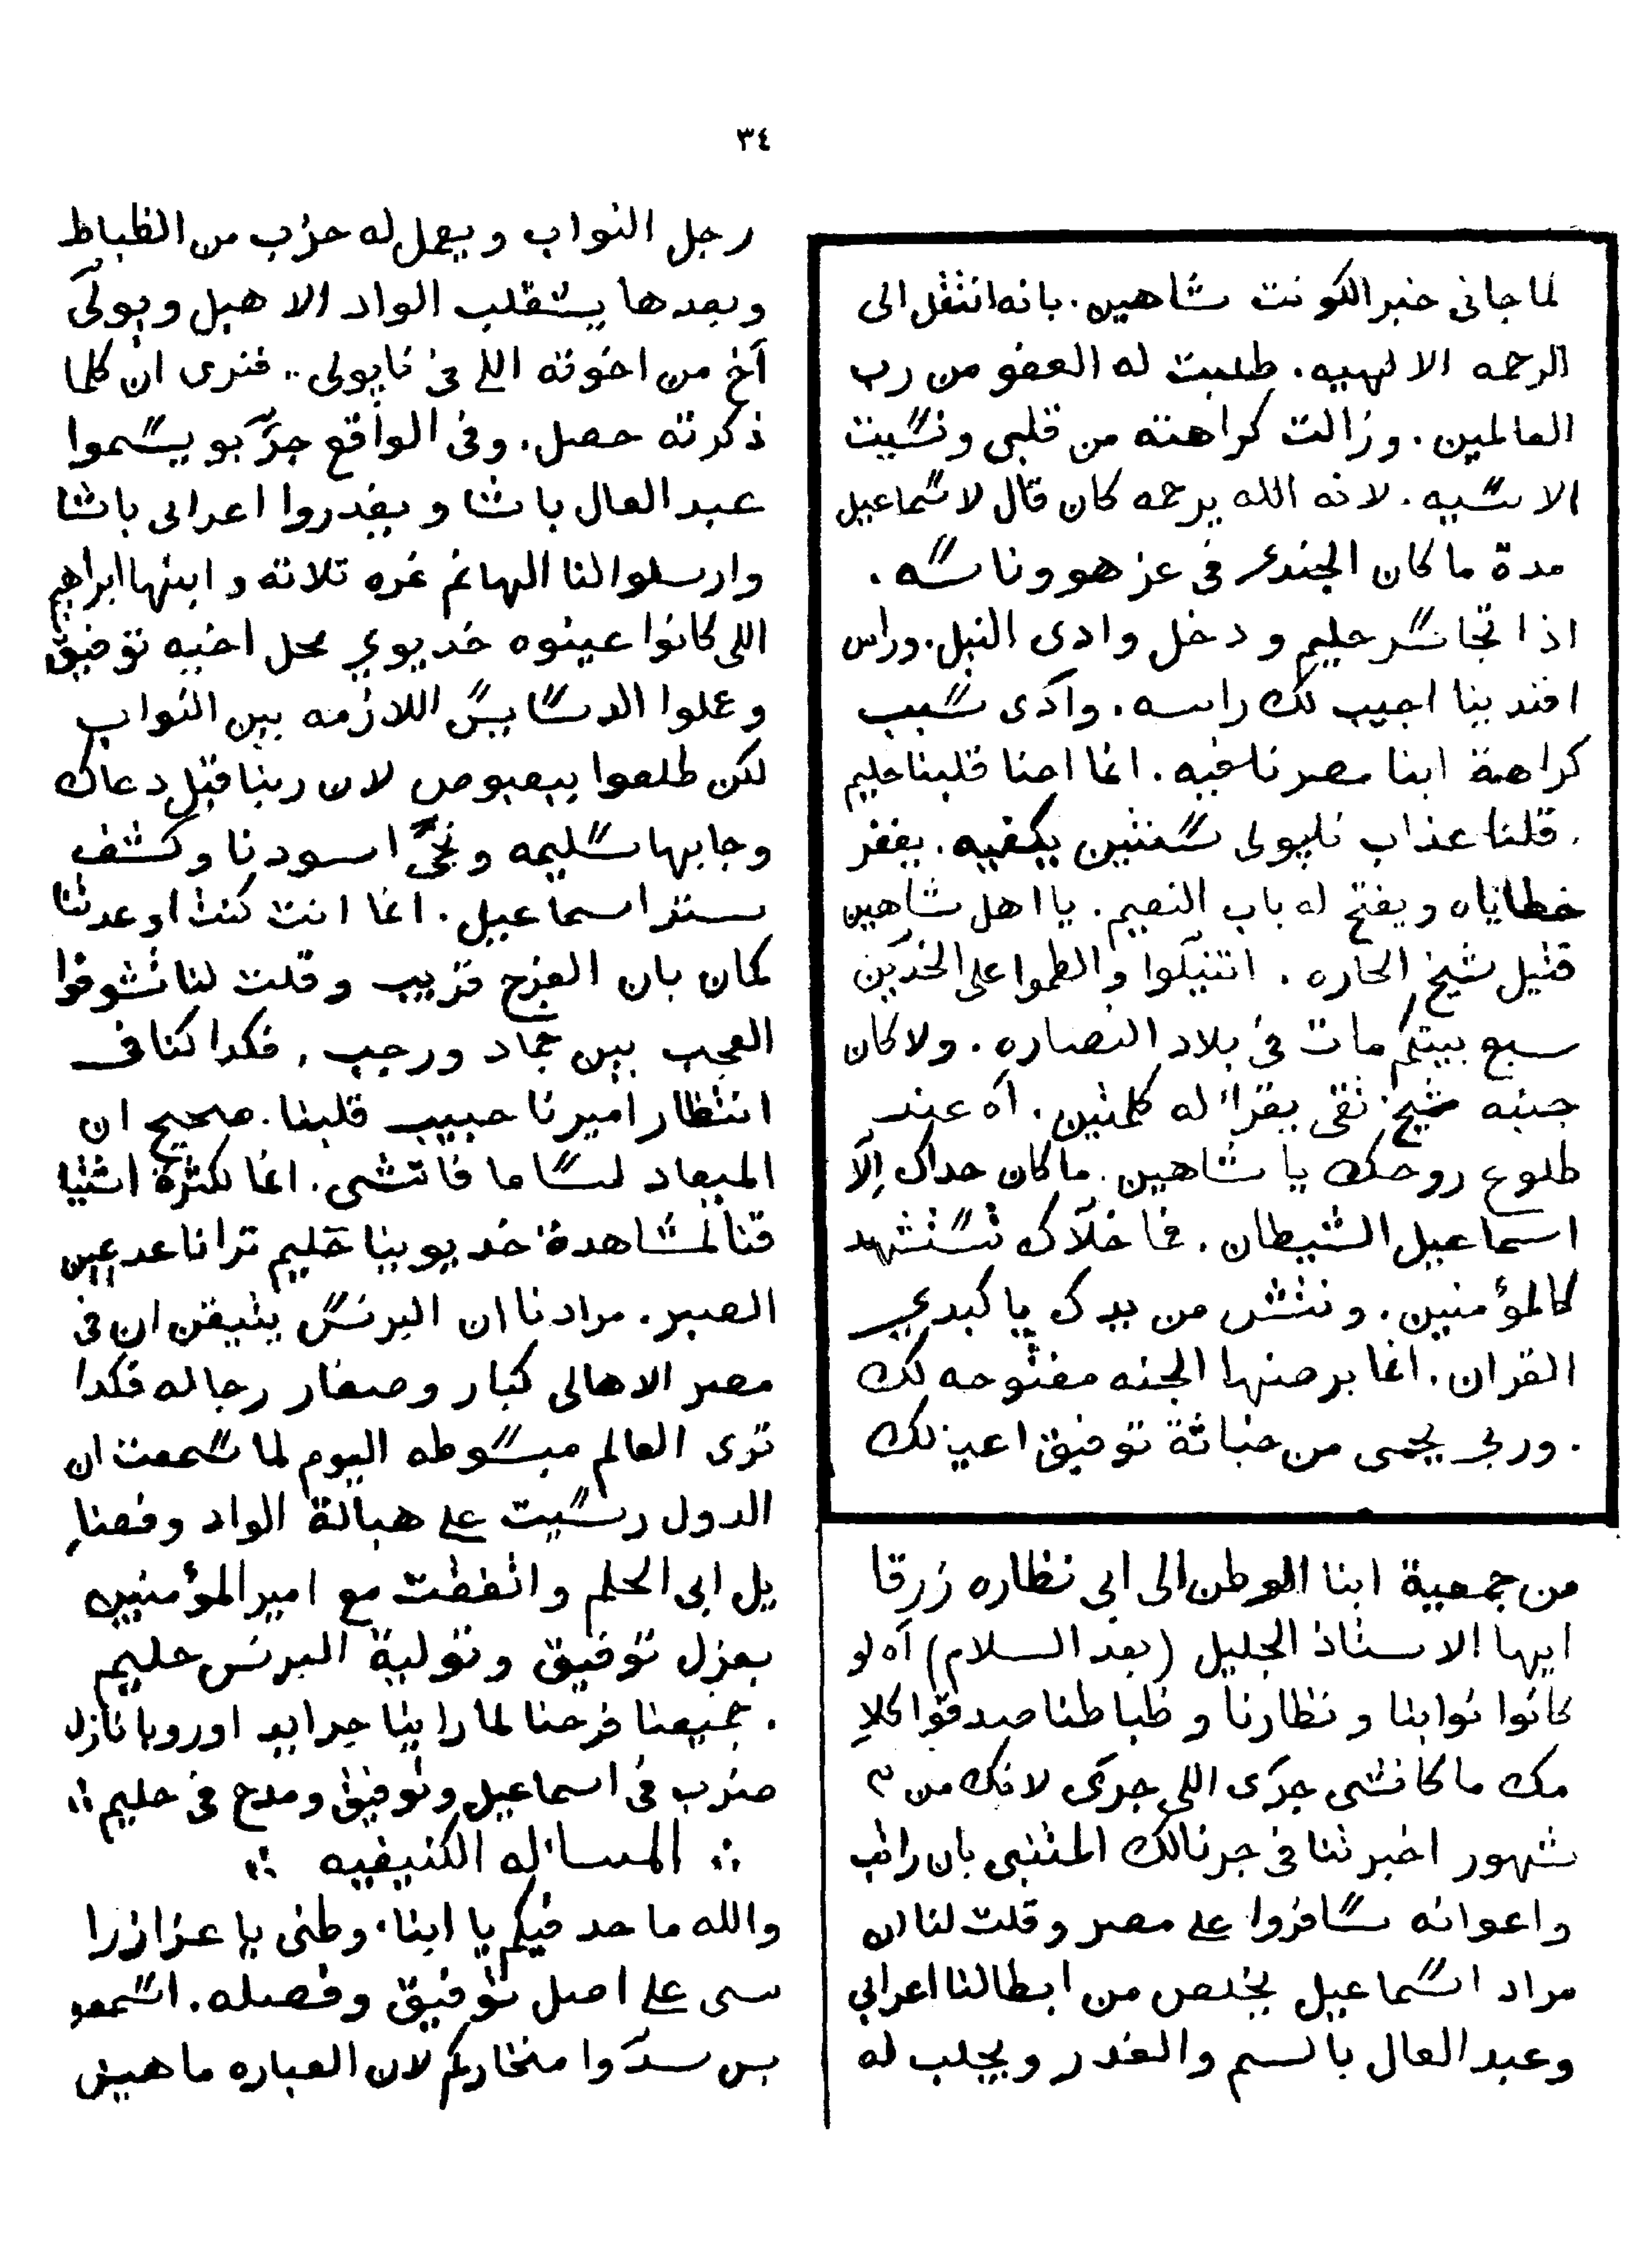 ٣٤
لما جانى خبر الكونت شاهين. بانه انتقل الى
الرحمه الالهيه. طلبت له العفو من رب
العالمين. وزالت كراهته من قلبى ونسيت
الاسيه. لانه الله يرحمه كان قال لاسماعيل
مدة ما كان الجندى فى عز هو وناسه.
اذا تجاسر حليم ودخل وادى النيل. وراس
افندينا اجيب لك راسه. وآدى سبب
كراهة ابنا مصرنا فيه. انما احنا قلبنا حليم
. قلنا عذاب نابولى سنتين يكفيه. يغفر
خطاياه ويفتح له باب النعيم. يا اهل شاهين
قتيل شيخ الحاره. اتنيلوا والطموا على الخدّين
سبع بيتكم مات فى بلاد النصاره. ولا كان
جنبه شيخ تقى يقرا له كلمتين. آه عند
طلوع روحك يا شاهين. ما كان حداك اِلّا
اسماعيل الشيطان. فما خلّاك تستشهد
كالمؤمنين. ونتش من يدك يا كبدي
القران. انما برضها الجنه مفتوحه لك
. وربى يحمى من خباثة توفيق اعيزلك
من جمعية ابنا الوطن الى ابى نظاره زرقا
ايها الاستاذ الجليل (بعد السلام) آه لو
كانوا نوابنا ونظارنا وظباطنا صدقوا كلا
مك ما كانشى جرَى اللى جرَى لانك من ٣
شهور اخبرتنا فى جرنالك المتنبى بان راتب
واعوانه سافروا على مصر وقلت لنا ان
مراد اسماعيل يخلص من ابطالنا اعرابى
وعبد العال بالسم والغدر ويجلب له
رجل النواب ويعمل له حزب من الظباط
وبعدها يتقلب الواد الاهبل ويولّى
آخ من اخوته اللى فى نابولى.. فنرى ان كلما
ذكرته حصل. وفى الواقع جرّبو يسموا
عبد العال باشا ويغدروا اعرابى باشا
وارسلوا لنا الهانم نمره تلاته وابنها ابراهيم
اللى كانوا عينوه خديوي محل اخيه توفيق
وعملوا الدسايس اللازمه بين النواب
لكن طلعوا ببعبوص لان ربنا قبل دعاك
وجابها سليمه ونجّى اسودنا وكشف
ستر اسماعيل. انما انت كنت اوعدتنا
كمان بان الفرج قريب وقلت لنا نشوفوا
العجب بين جماد ورجب, فكدا كنا فى
انتظار اميرنا حبيب قلبنا. صحيح ان
الميعاد لسا ما فاتشى. انما لكثرة اشتيا
قنا لمشاهدة خديوينا حليم ترانا عدمين
الصبر. مرادنا ان البرنس يتيقن ان فى
مصر الاهالى كبار وصغار رجاله فكدا
ترى العالم مبسوطه اليوم لما سمعت ان
الدول رسيت على هبالة الواد وفضا
يل ابى الحلم واتفقت مع امير المؤمنين
بعزل توفيق وتولية البرنس حليم
. جميعنا فرحنا لما راينا جرايد اوروبا نازله
ضرب فى اسماعيل وتوفيق ومدح فى حليم ∴
∴ المساله الكنيفيه ∴
والله ما حد فيكم يا ابناء وطنى يا عزاز را
سى على اصل توفيق وفصله. اسمعو
بس سدّوا مناخاركم لان العباره ما هيش